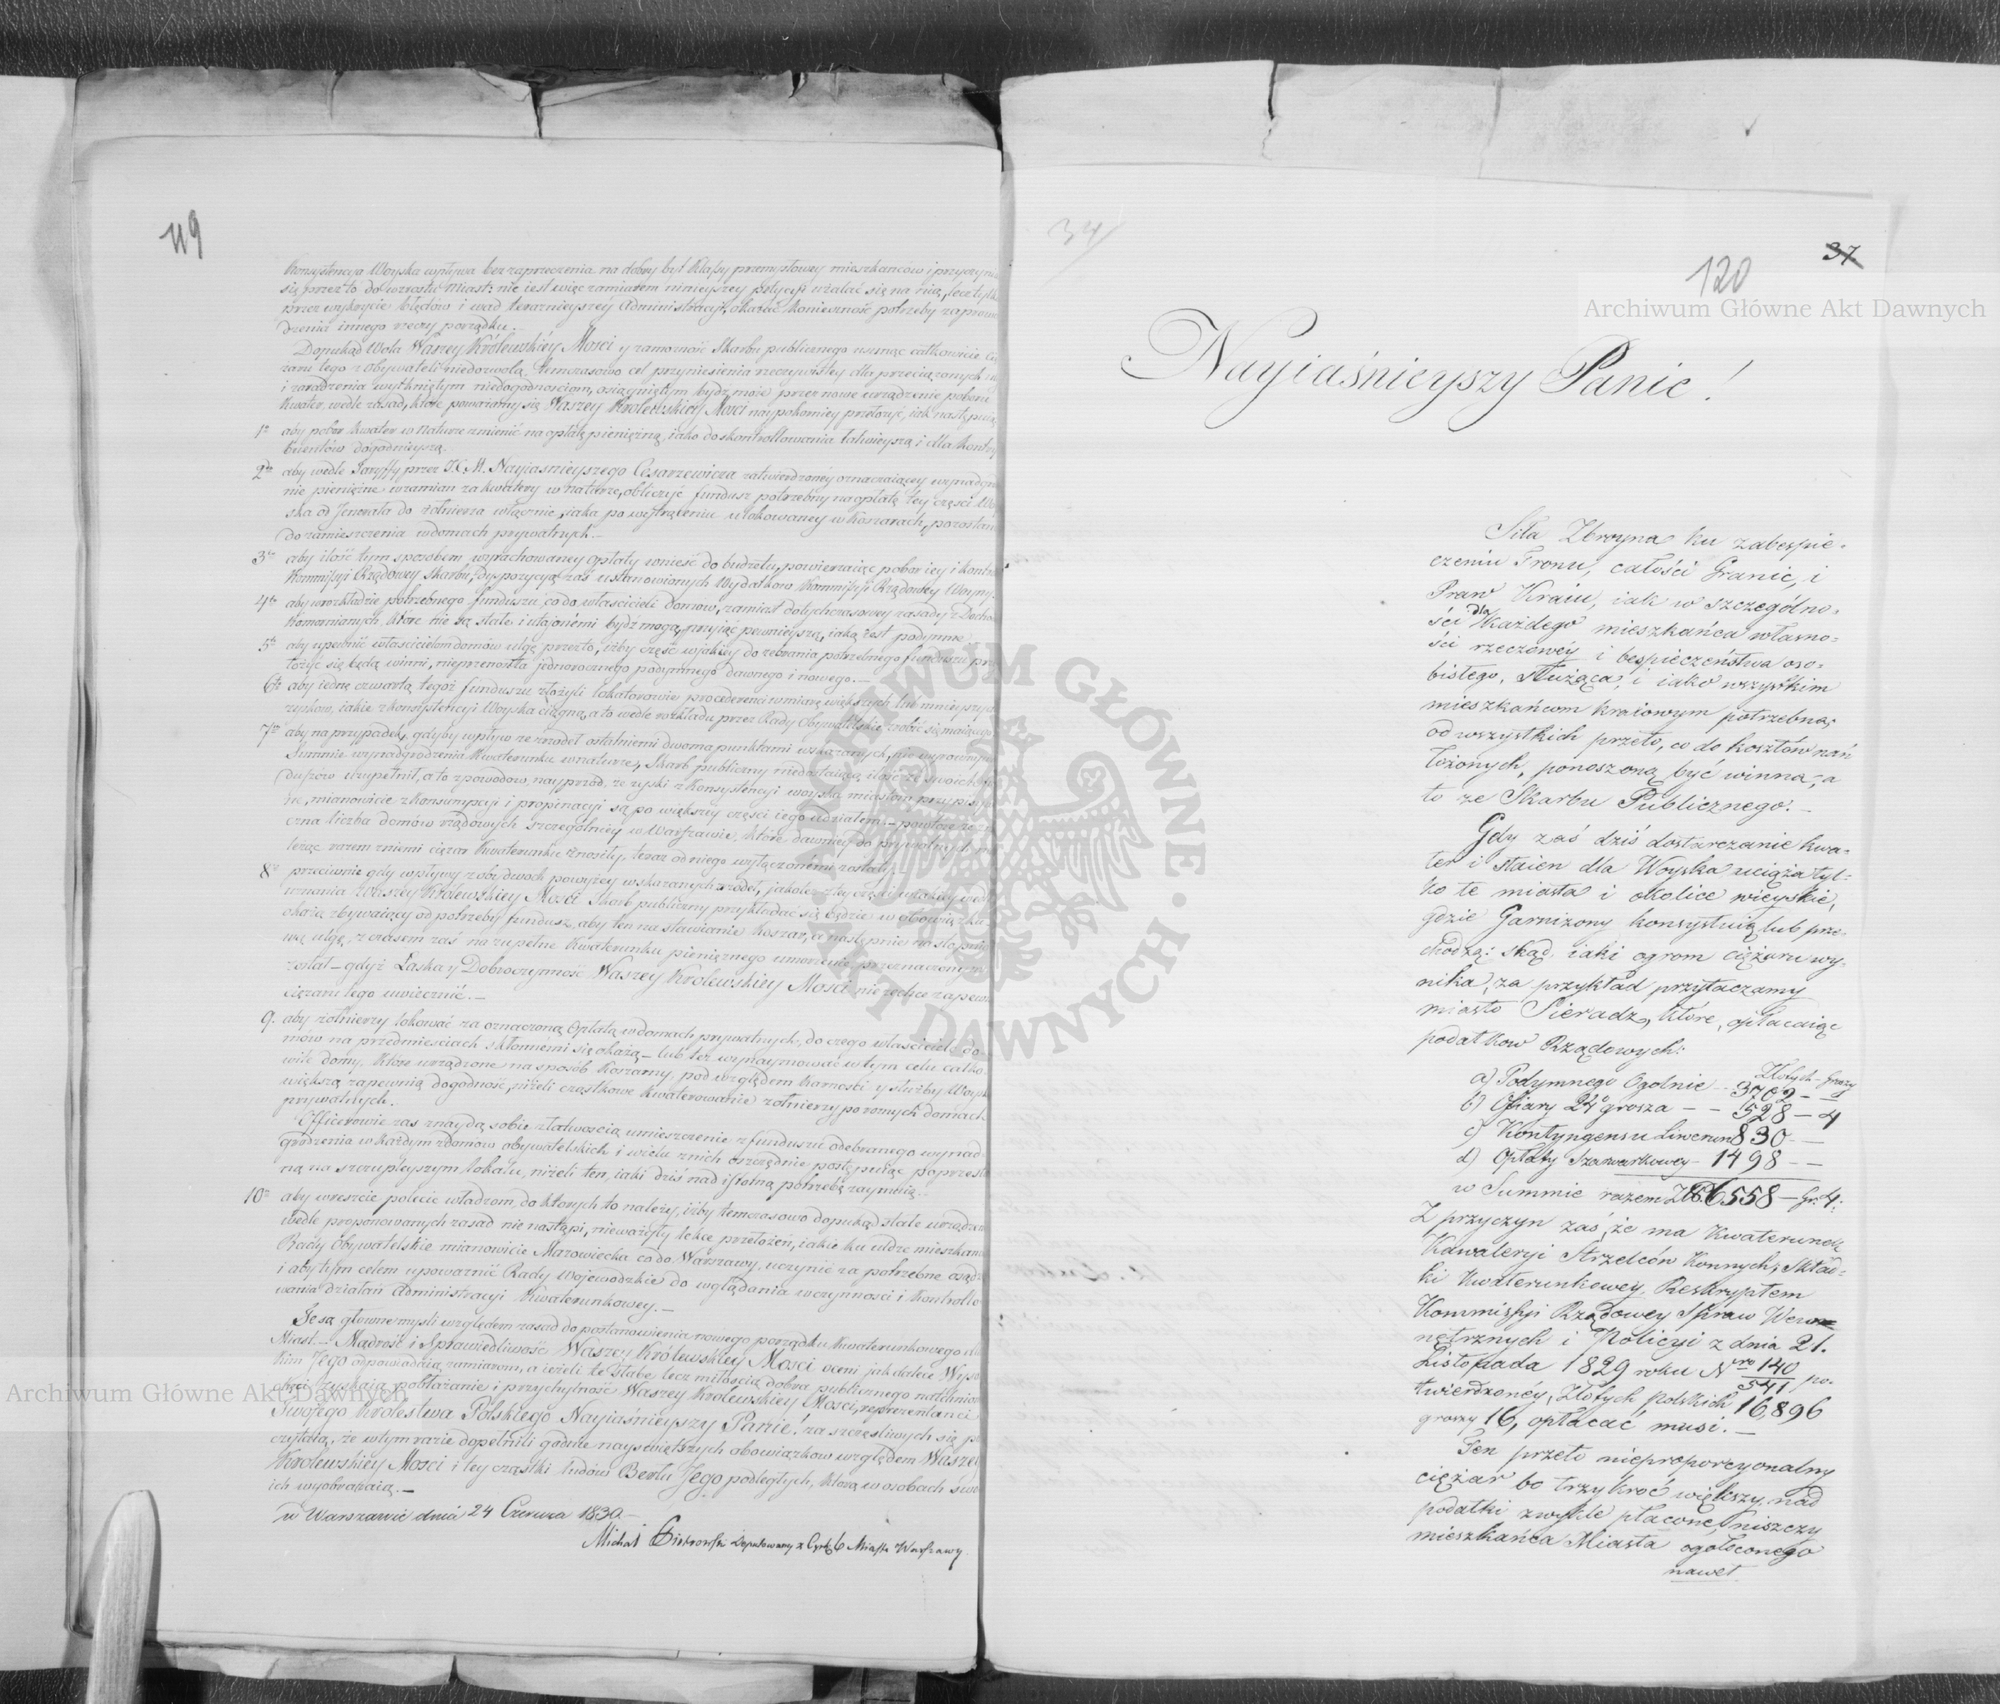 119
Konsystencya Woyska wpływa bez zaprzeczenia na dobry byt Klassy przemysłowey mieszkańców i przyczynia
się przez to do wzrostu Miast: nie iest więc zamiarem ninieyszey petycyi użalać się na nią, lecz tylko
przez wykrycie błędów i wad teraznieyszey Administracyi, okazać konieczność potrzeby zaprowa
dzenia innego rzeczy porządku.
Dopukąd Wola Waszey Królewskiéy Mości y zamożność Skarbu publicznego usunąć całkowicie cię
żaru tego z Obywateli niedozwolą, tymczasowo cel przyniesienia rzeczywistey dla przeciążonych
i zaradzenia wytkniętym niedogodnościom, osiągniętym bydź może przez nowe urządzenie poboru
Kwater, wedle zasad, które poważamy się Waszey Krolewskiey Mości naypokorniey przełożyć, iak następuie
1o aby pobór kwater w naturze zmienić na opłatę pieniężną, iako do skontrollowania łatwieyszą i dla Kontry
buentów dogodnieyszą.
2do aby wedle Taryffy przez J.C.M. Nayiaśnieyszego Cesarzewicza zatwierdzonéy oznaczaiącey wynadgro
nie pieniężne wzamian za kwatery w naturze, obliczyć fundusz potrzebny na opłatę tey części Woy
ska od Jenerała do żołnierza włącznie, iaka po wytrąceniu ulokowaney w Koszarach, pozostaie
do zamieszczenia w domach prywatnych.—
3tio aby ilość tym sposobem wyrachowaney opłaty wnieść do budżetu, powierzaiąc pobór iey i kontro
Kommissyi Rządowey Skarbu, dyspozycyą zaś ustanowionych Wydatków Kommissyi Rządowey Woyny.
4to aby w rozkładzie potrzebnego funduszu, co do właścicieli domów, zamiast dotychczasowey zasady z Docho
Komornianych, które nie są stałe i utajonémi bydź mogą, przyiąć pewnieyszą, iaką iest podymne.
5to aby upewnić właścicielom domów ulgę przez to, iżby część w jakiéy do zebrania potrzebnego funduszu przy
łożyć się będą winni, nieprzenosiła jednorocznego podymnego dawnego i nowego.—
6te aby iednę czwartą tegoż funduszu złożyli lokatorowie procederenci w miarę większych lub mnieyszych
zysków, iakie z konsystencyi Woyska ciągną, a to wedle rozkładu przez Rady Obywatelskie zrobić się maiącego.
7mo aby na przypadek, gdyby wpływ ze źrodeł ostatniemi dwoma punktami wskazanych, nie wyrównywał
Summie wynadgrodzenia Kwaterunku w naturze, Skarb publiczny niedostaiącą ilość ze swoich fun
duszów uzupełnił, a to z powodów, nayprzód, że zyski z Konsystencyi woyska miastom przypisy
ne, mianowicie z konsumpcyi i propinacyi są po większey części iego udziałem,—powtóre że
czna liczba domów rządowych szczególniey w Warszawie, które dawniey do prywatnych na
leżąc razem z niemi ciężar kwaterunku znosiły, teraz od niego wyłączonémi zostały.—
8o przeciwnie gdy wpływy z obu dwóch powyżey wskazanych źrodeł, jakoteż z tey części w jakiéy wedle
uznania Waszey Królewskiey Mości Skarb publiczny przykładać się będzie w obowiązku
okażą zbywaiący od potrzeby fundusz, aby ten na stawianie Koszar, a następnie na stopnio
wą ulgę, z czasem zaś na zupełne kwaterunku pieniężnego umorzenie przeznaczonym
został—gdyż Łaska y Dobroczynność Waszey Krolewskiey Mości nie zechce zapewne
ciężaru tego uwiecznić.—
9. aby żołnierzy lokować za oznaczoną opłatą w domach prywatnych, do czego właściciele do
mów na przedmieściach skłonnémi się okażą—lub też wynaymować w tym celu całko
wite domy, które urządzone na sposób Koszarny, pod względem karności y służby Woysk
większą zapewnią dogodność, niżeli cząstkowe kwaterowanie żołnierzy po roznych domach
prywatnych.
Officerowie zas znaydą sobie z łatwością umieszczenie z funduszu odebranego wynad
grodzenia w każdym z domów obywatelskich i wielu z nich oszczędnie postępuiąc poprzesta
ną na szczuplejszym lokalu, niżeli ten, iaki dziś nad istotną potrzebę zaymuią.
10o aby wreszcie polecić władzom, do których to należy, iżby tymczasowo dopukąd stałe urządzenie
wedle proponowanych zasad nie nastąpi, nieważyły lekce przełożeń, iakie ku uldze mieszkańców
Rady Obywatelskie mianowicie Mazowiecka co do Warszawy, uczynić za potrzebne osądzą
i aby tym celem upoważnić Rady Wojewódzkie do wglądania w czynności i kontrollo
wania działań Administracyi Kwaterunkowey.—
Te są główne myśli względem zasad do postanowienia nowego porządku kwaterunkowego dla
Miast.— Mądrość i Sprawiedliwość Waszey Królewskiey Mości oceni jak dalece Wyso
kim Jego odpowiadaią zamiarom, a ieżeli te słabe lecz miłością dobra publicznego natchnione
chęci zyskaią pobłażanie i przychylność Waszey Krolewskiey Mości, reprezentanci
Swojego Królestwa Polskiego Nayiaśnieyszy Panie! za szczęśliwych się po
czytaią, że w tym razie dopełnili godnie nayświętszych obowiązków względem Waszey
Krolewskiey Mości i tey cząstki ludów Berłu Jego podległych, którą w osobach swo
ich wyobrażaią.—
w Warszawie dnia 24 Czerwca 1830.—
Michał Deputowany z Cyrk. 6 Miasta Warszawy.
34
37
120
Nayiaśnieyszy Panie!
Siła Zbroyna ku zabespie-
czeniu Tronu, całości Granic, i
Praw Kraiu, iak w szczególno-
ści dla każdego mieszkańca własno-
ści rzeczowéy i bespieczeństwa oso-
bistego, służąca, i iako wszystkim
mieszkańcom kraiowym potrzebna,
od wszystkich przeto, co do kosztów nań
łożonych, ponoszoną być winna,- a
to ze Skarbu Publicznego.—
Gdy zaś dziś dostarczanie kwa-
ter i stajen dla Woyska uciąża tyl-
ko te miasta i okolice wieyskie,
gdzie Garnizony konsystuią lub prze-
chodzą: skąd, iaki ogrom ciężaru wy-
nika, za przykład przytaczamy
miasto Sieradz, które, opłacaiąc
podatków Rządowych:
Złotych – Groszy
a) Podymnego Ogólnie — 3702 – –
b) Ofiary 24o grosza — 528 – 4
c) Kontyngensu Liwerun 830 – –
d) Opłaty Szarwarkowey – 1498 – –
w Summie razem Złt 6558 – Gr: 4:
Z przyczyn zaś, że ma kwaterunek
Kawaleryi Strzelców Konnych, Skład-
ki kwaterunkowey, Reskryptem
Kommissyi Rządowey Spraw Wew-
nętrznych i Policyi z dnia 21.
Listopada 1829 roku Nro 140/541 po-
twierdzonéy, Złotych polskich 16,896
groszy 16, opłacać musi.—
Ten przeto nieproporcyonalny
ciężar bo trzykroć większy nad
podatki zwykle płacone, niszczy
mieszkańca Miasta ogołoconego
nawet
Archiwum Główne Akt Dawnych
Archiwum Główne Akt Dawnych
ARCHIWUM GŁÓWNE AKT DAWNYCH